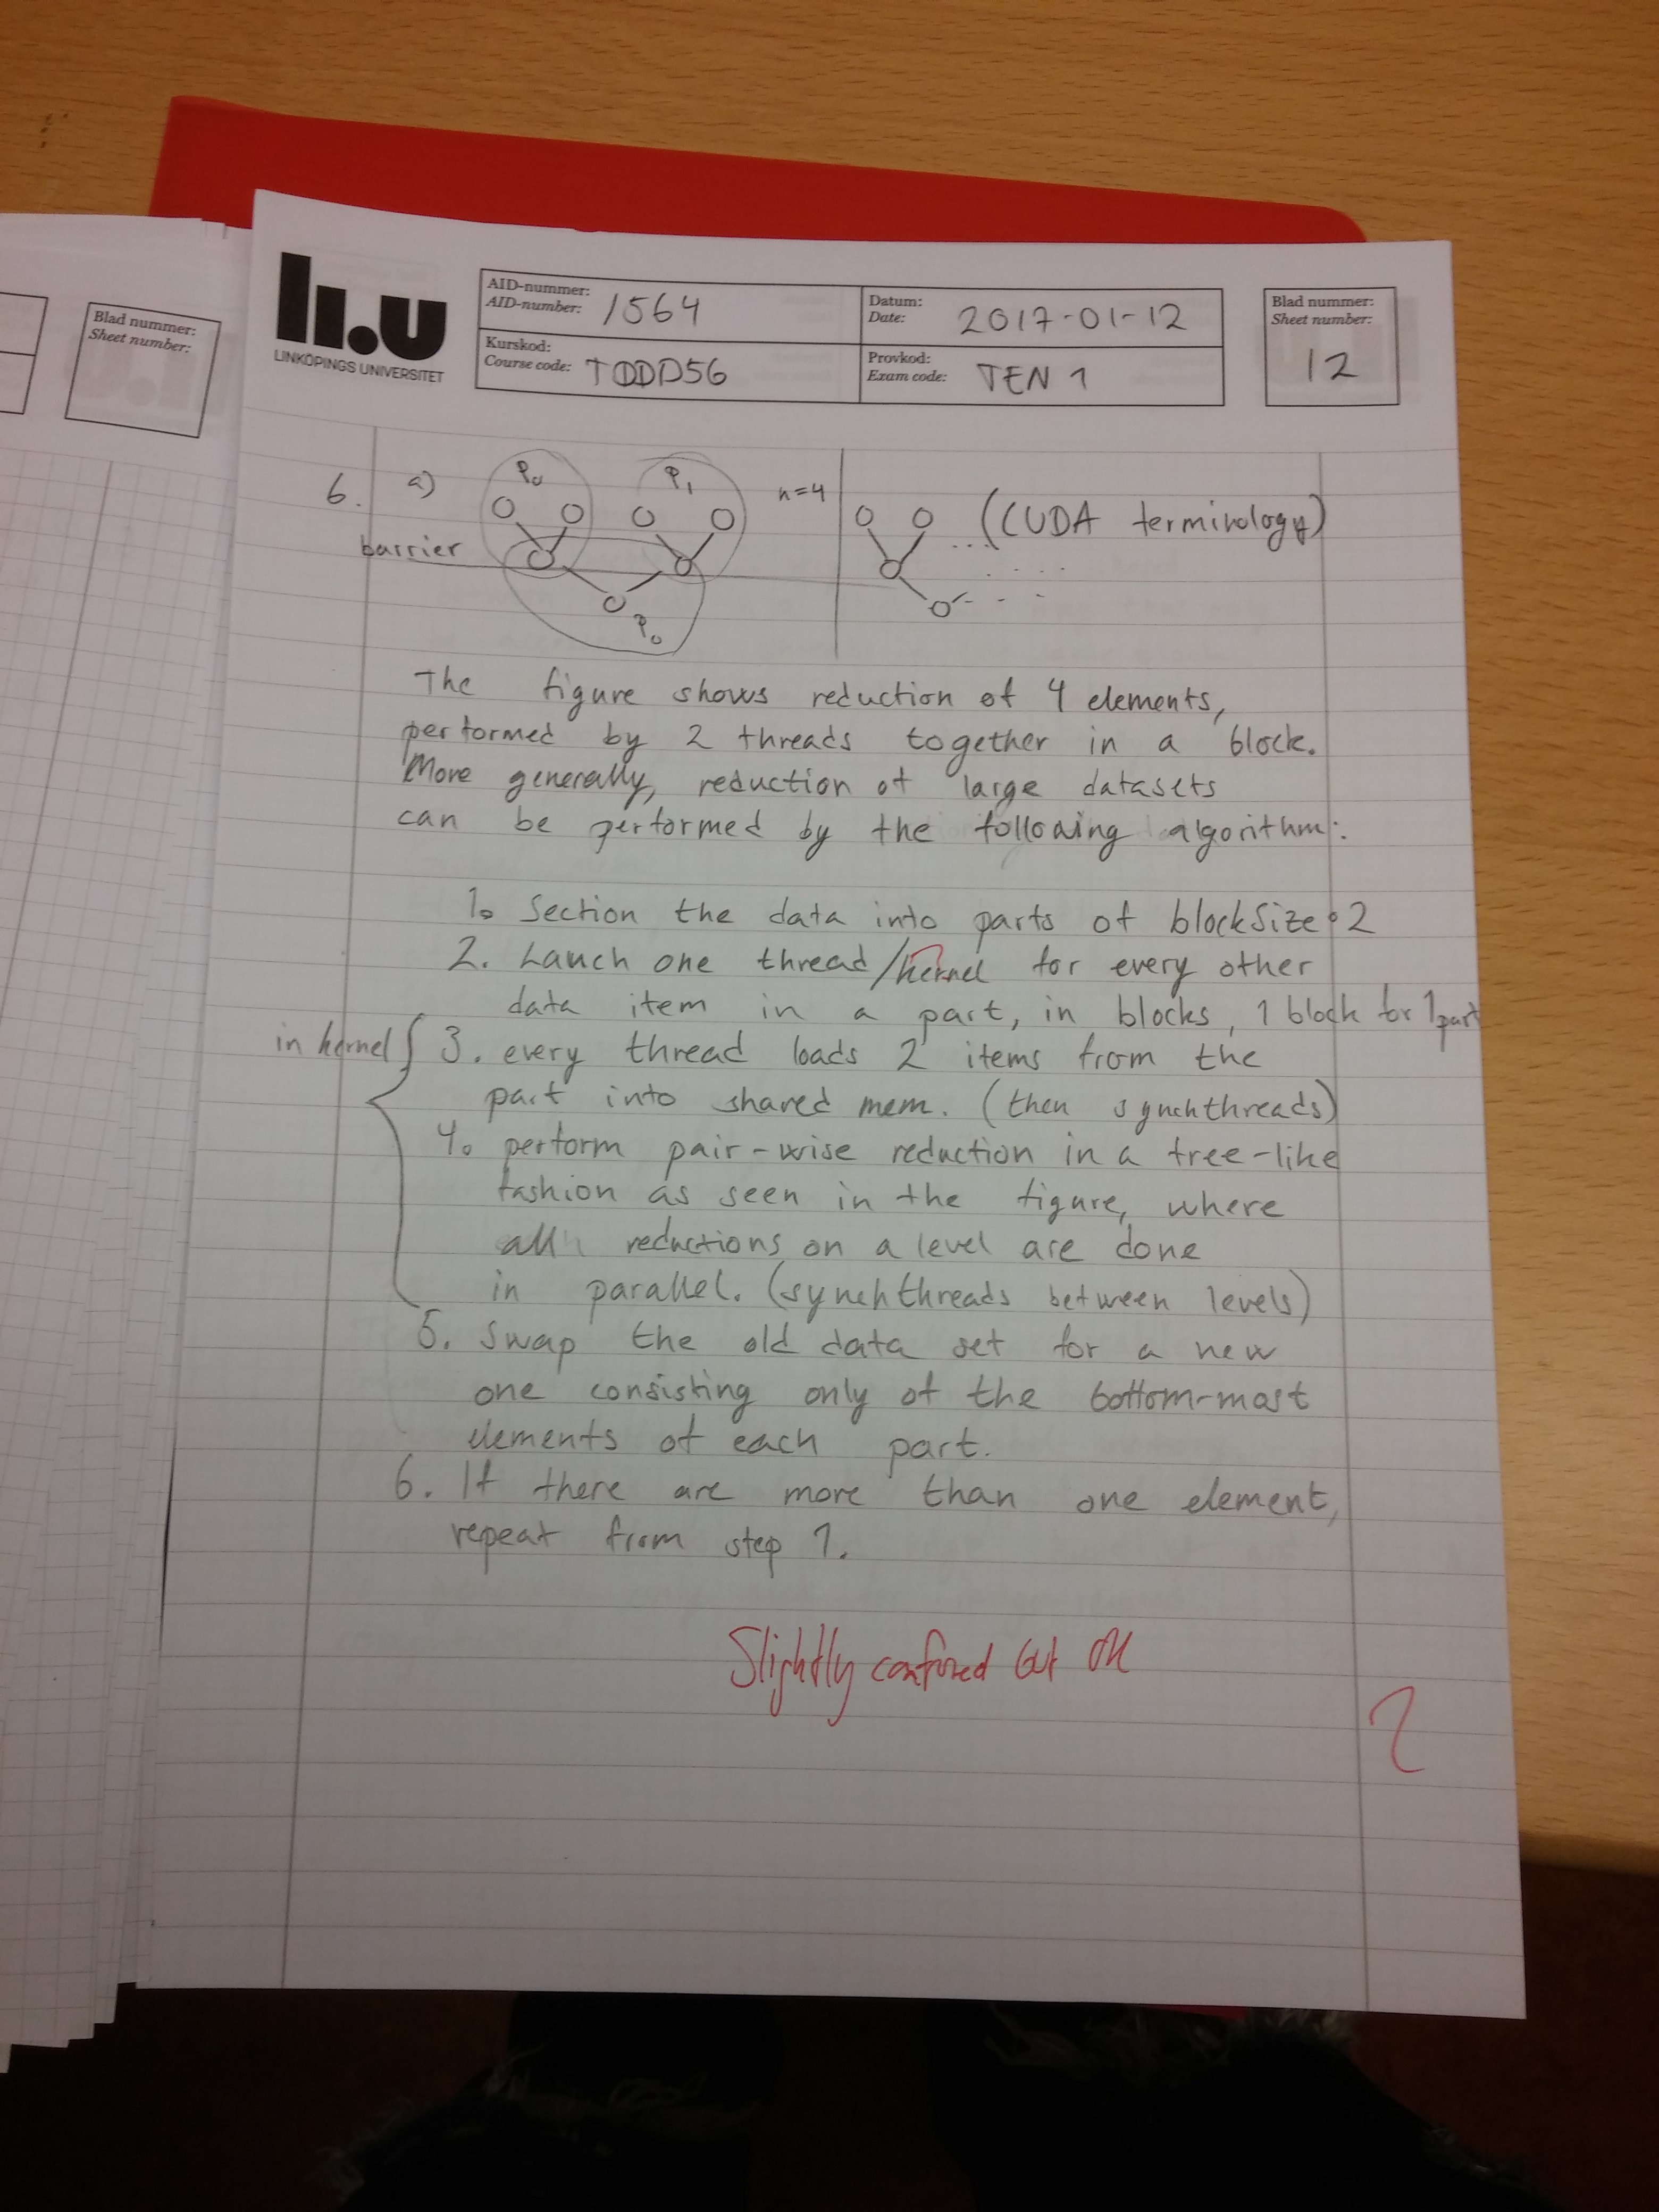 Blad nummer:
Sheet number:
li.u
LINKÖPINGS UNIVERSITET
AID-nummer:
AID-number: 1564
Datum:
Date: 2017-01-12
Kurskod:
Course code: TDDD56
Provkod:
Exam code: TEN 1
Blad nummer:
Sheet number:
12
6. a) P0 P1 n=4 (CUDA terminology)
barrier
P0
The figure shows reduction of 4 elements,
performed by 2 threads together in a block.
More generally, reduction of large datasets
can be performed by the following algorithm:
1. Section the data into parts of blockSize·2
2. Lauch one thread/kernel for every other
data item in a part, in blocks, 1 block for 1 part
in kernel { 3. every thread loads 2 items from the
part into shared mem. (then synchthreads)
4. perform pair-wise reduction in a tree-like
fashion as seen in the figure, where
all reductions on a level are done
in parallel. (synchthreads between levels)
5. Swap the old data set for a new
one consisting only of the bottom-most
elements of each part.
6. If there are more than one element,
repeat from step 1.
Slightly confused but OK
2